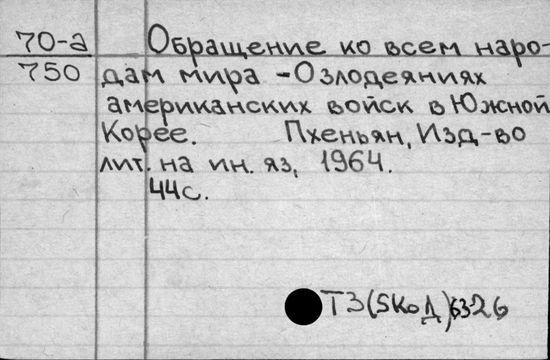 70-а
750
Обращение ко всем наро-
дам мира - Озлодеяниях
американских войск в Южной
Корее. Пхеньян, Изд-во
лит. на ин. яз, 1964.
44с.
ТЗ(5КоД)6326